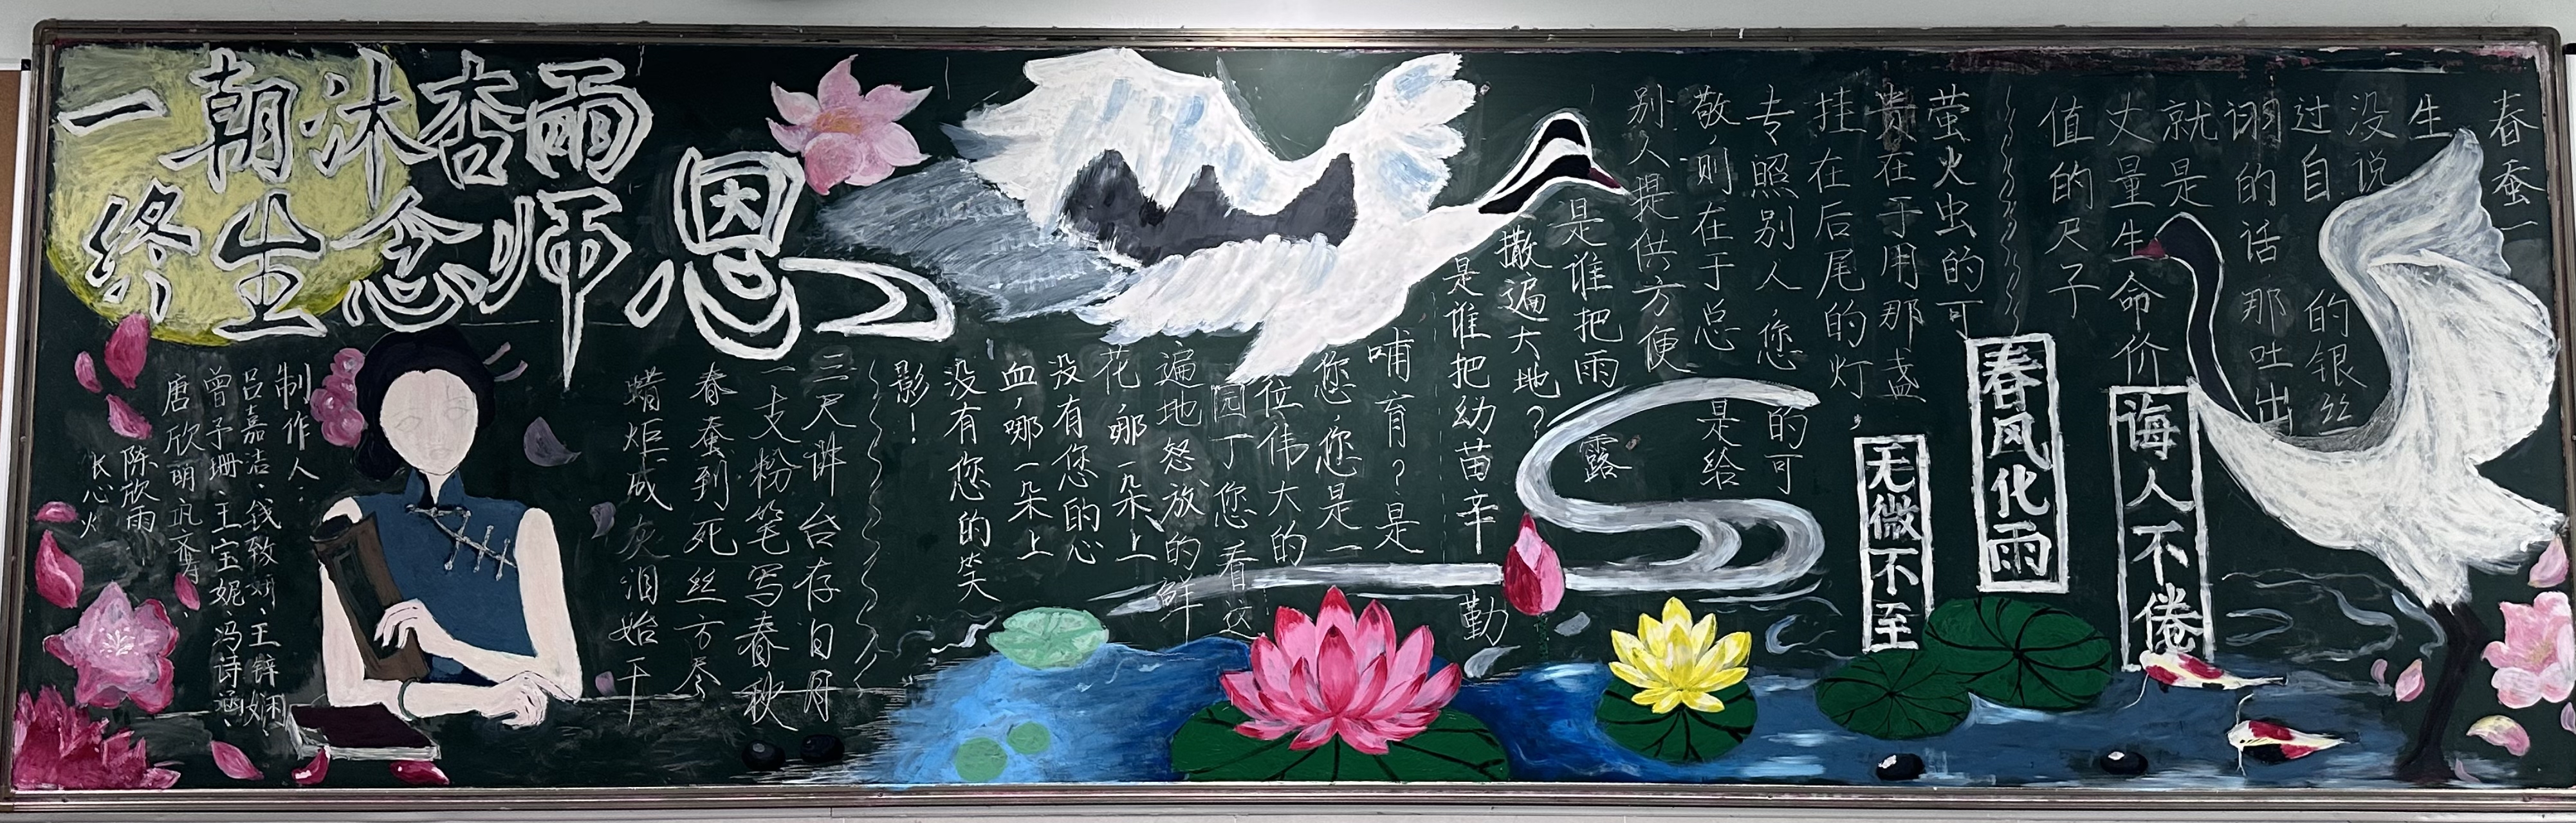 一朝沐杏雨
终生念师恩
春蚕一
生
没说
过自的银丝
诩的话 那吐出
就是
丈量生命价
值的尺子
萤火虫的可
贵在于用那盏
挂在后尾的灯
专照别人,您的可
敬,则在于总是给
别人提供方便
是谁把雨露
撒遍大地?
是谁把幼苗辛勤
哺育?是
您,您是一
位伟大的
园丁您 看这
遍地怒放的鲜
花,哪一朵上
没有您的心
血,哪一朵上
没有您的笑
影!
诲人不倦
春风化雨
无微不至
三尺讲台存日月
一支粉笔写春秋
春蚕到死丝方尽
蜡炬成灰泪始干
制作人:
吕嘉洁、钱致妍、王锌娴
曾予珊、王宝妮、冯诗涵、
唐欣明
陈欣雨